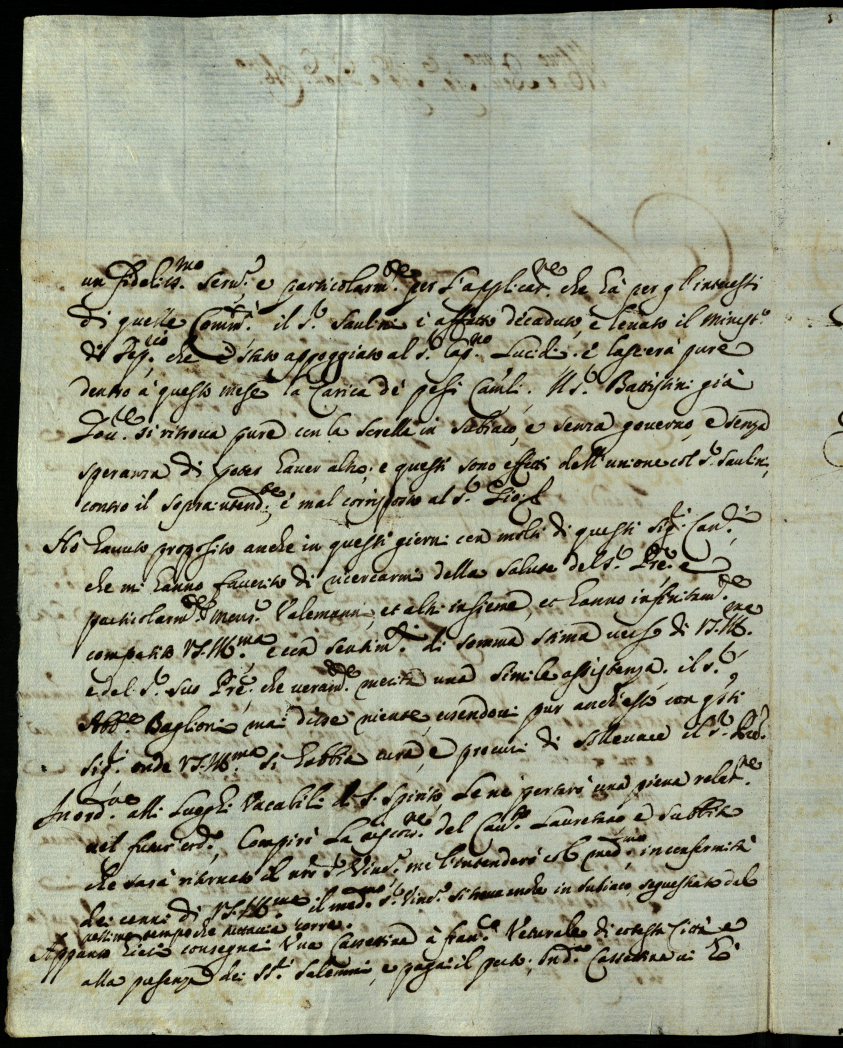 un fidelis.mo Serv.e e particolarm.te per l'applicat.ne che hà per gl'intressi
di quella Comm.tà il S.r Saulini è affatto decaduto, e levato il Minist.o
di che è stato appoggiato al S.r Cap.no Lucidi. e lascierà pure
dentro à questo mese la Carica de pesi Cam.li. Il S.r Battistini già
si ritrova pure con le sorelle in Subiaco, e senza governo, e senza
speranza di poter haver altro; e questi sono effetti dell'unione col S.r Saulini,
contro il sopraintend.te, e mal corrisposto al S.r
Hò havuto proposito anche in questi giorni con molti di questi Sig.ri
che mi hanno favorito di ricercarmi della salute del S.r P.re e
particolarm.te Mons.r Valemani, et altri insieme, et hanno infinitam.te
compatito V.S.Ill.ma, e con sentim.ti di somma stima verso di V.S.Ill.ma
e del S.r Suo P.re, che veram.te merita una simile assistenza. il S.r
Abb.e Baglioni mai disse niente, essendovi pur anch'esso con q.sti
Sig.ri onde V.S.Ill.ma si habbia cura, e procuri di sollevare il S.r P.re.
In ord.ne alli Luoghi Vacabili di S. Spirito, Le ne porterò una piena relat.ne
nel futur ord.o Compirò La del Lauretano e subbito
che sarà ritornato il S.r Vinc.o me l'intenderò col med.mo in conformità
dei cenni di V.S.Ill.ma il med.mo S.r Vinc.o si trova anche in Subiaco sequestrato dal
pessimo tempo che tuttavia corre.
Appunto hieri consegnai Una Cassettina à Fran.co Vetturale di cotesta Città e
alla presenza dei SS.ri Salemmi, e pagai il porto; In d.a Cassettina vi è